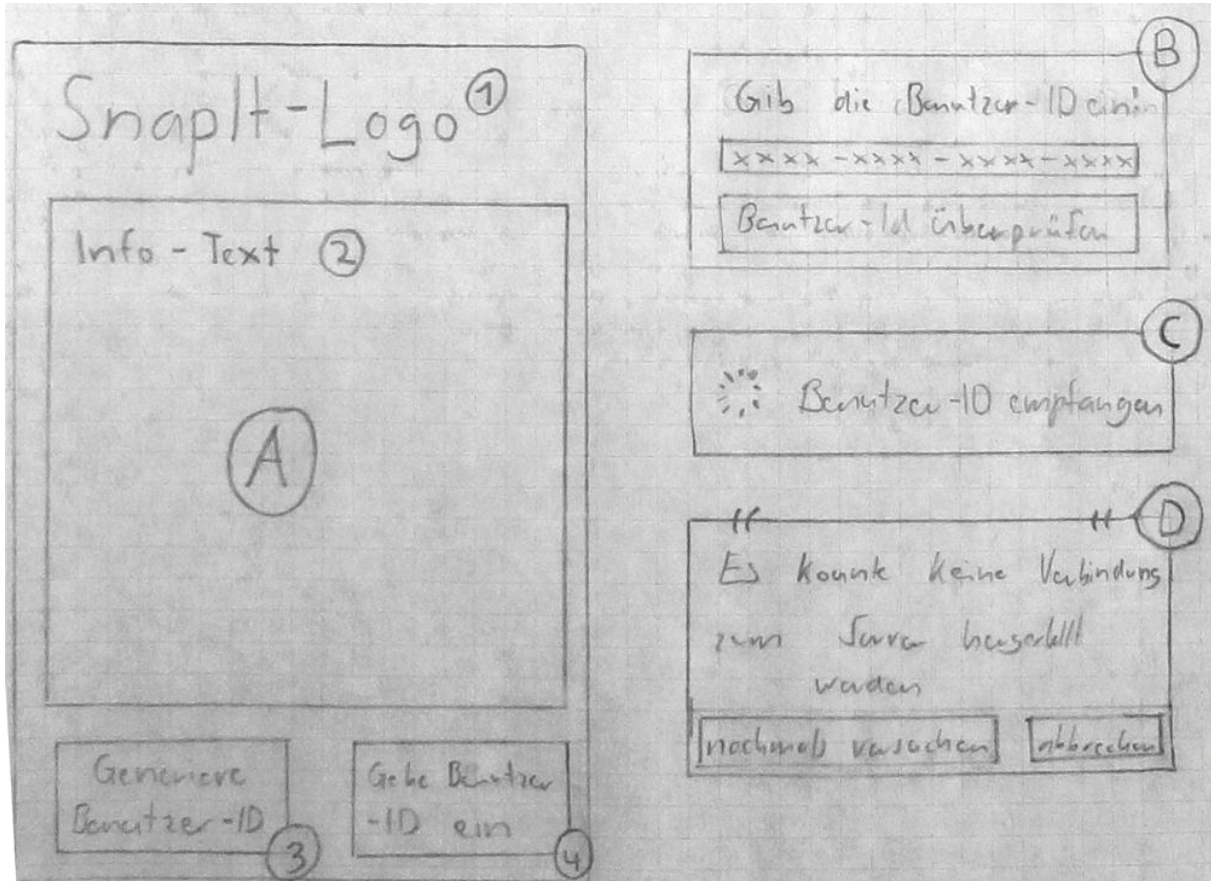 SnapIt-Logo 1
Info-Text 2
A
Generiere
Benutzer-ID
3
Gebe Benutzer
-ID ein
4
B
Gib die Benutzer-ID ein:
xxxx-xxxx-xxxx-xxxx
Benutzer-Id überprüfen
C
Benutzer-ID empfangen
D
Es konnte keine Verbindung
zum Server hergestellt
werden
nochmals versuchen abbrechen